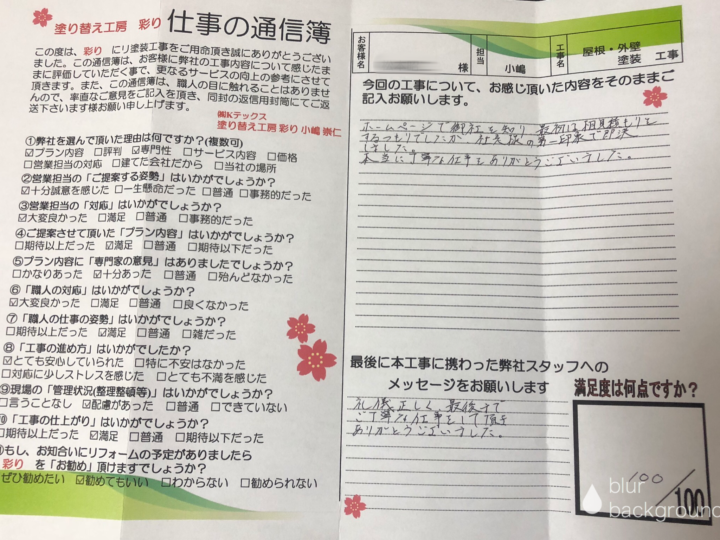 塗り替え工房 彩り 仕事の通信簿
この度は、彩り にリ塗装工事をご用命頂き誠にありがとうござい
ました。この通信簿は、お客様に弊社の工事内容について感じたま
まに評価していただく事で、更なるサービスの向上の参考にさせて
頂きます。また、この通信簿は、職人の目に触れることはありませ
んので、率直なご意見をご記入を頂き、同封の返信用封筒にてご返
送下さいます様お願い申し上げます。
㈱Kテックス
塗り替え工房 彩り 小嶋 崇仁
①弊社を選んで頂いた理由は何ですか?(複数可)
☑プラン内容 □評判 ☑専門性 □サービス内容 □価格
□営業担当の対応 □建てた会社だから □当社の場所
②営業担当の「ご提案する姿勢」はいかがでしょうか?
☑十分誠意を感じた □一生懸命だった □普通 □事務的だった
③営業担当の「対応」はいかがでしょうか?
☑大変良かった □満足 □普通 □事務的だった
④ご提案させて頂いた「プラン内容」はいかがでしょうか?
□期待以上だった ☑満足 □普通 □期待以下だった
⑤プラン内容に「専門家の意見」はありましたでしょうか?
□かなりあった ☑十分あった □普通 □殆んどなかった
⑥「職人の対応」はいかがでしょうか?
☑大変良かった □満足 □普通 □良くなかった
⑦「職人の仕事の姿勢」はいかがでしょうか?
□期待以上だった ☑満足 □普通 □雑だった
⑧「工事の進め方」はいかがでしたか?
☑とても安心していられた □特に不安はなかった
□対応に少しストレスを感じた □とても不満を感じた
⑨現場の「管理状況(整理整頓等)」はいかがでしょうか?
□言うことなし ☑配慮があった □普通 □できていない
⑩「工事の仕上がり」はいかがでしょうか?
□期待以上だった ☑満足 □普通 □期待以下だった
もし、お知合いにリフォームの予定がありましたら
彩り を「お勧め」頂けますでしょうか?
ぜひ勧めたい ☑勧めてもいい □わからない □勧められない
お客様名 様 担当 小嶋 工事名 屋根・外壁 塗装 工事
今回の工事について、お感じ頂いた内容をそのままご
記入お願いします。
ホームページで御社を知り 最初は相見積もりを
するつもりでしたが 社長様の第一印象で即決
しました。
本当に丁寧な仕事をありがとうございました。
最後に本工事に携わった弊社スタッフへの
メッセージをお願いします
礼儀正しく、最後まで
ご丁寧な仕事をして頂き
ありがとうございました。
満足度は何点ですか?
100/100
blur
background